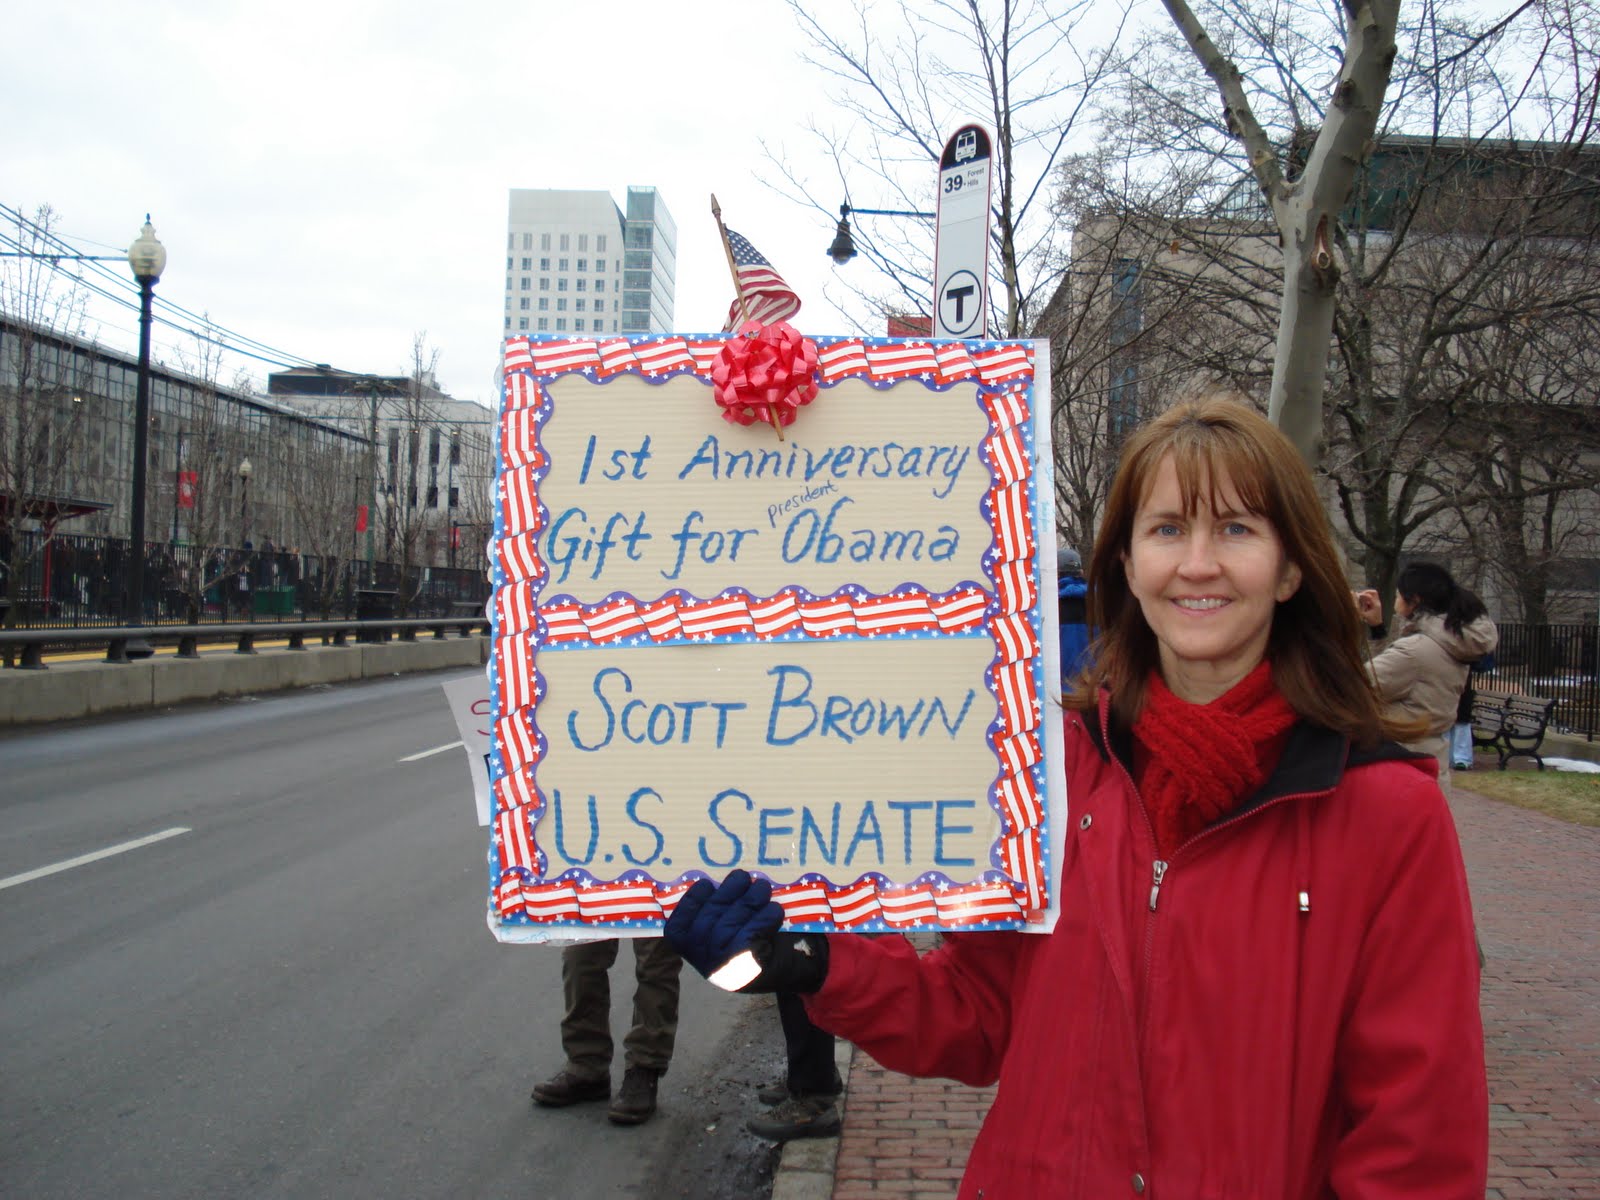 39- Forest
Hills
T
1st Anniversary
president
Gift for Obama
SCOTT BROWN
U.S. SENATE
S